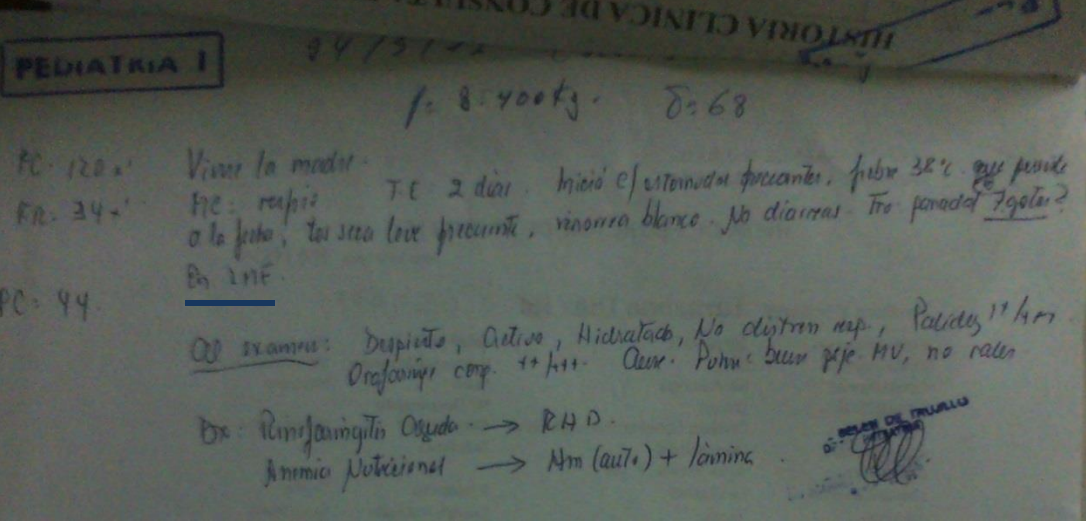 HISTORIA CLINICA DE CONSULTA
PEDIATRIA 1
P= 8.400 Kg. T=68
FC: 120 x' Viene la madre.
FR: 34 x' MC: resfrio T.E 2 dias. Inició c/ estornudos frecuentes, fiebre 38°C que persiste
a la fecha, tos seca leve frecuente, rinorrea blanca. No diarreas. Tto panadol 7 gotas?
En LME.
PC: 44
Al examen: Despierto, Activo, Hidratado, No distress resp., Palidez ++/+++
Orofaringe cong. ++/+++. Ausc. Pulm: buen pje MV, no rales
Dx: Rinofaringitis Aguda → RHD.
Anemia Nutricional → Hm (auto) + lámina
BELEN DE TRUJILLO